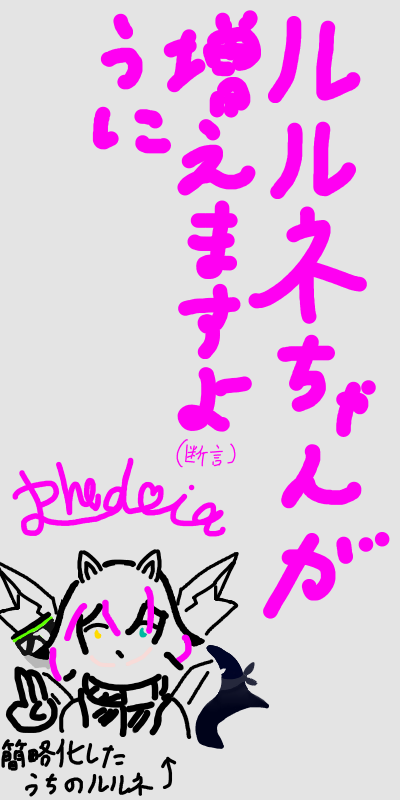 ルルネちゃんが
増えますよ
うに
(断言)
phedoia
簡略化した
うちのルルネ↑